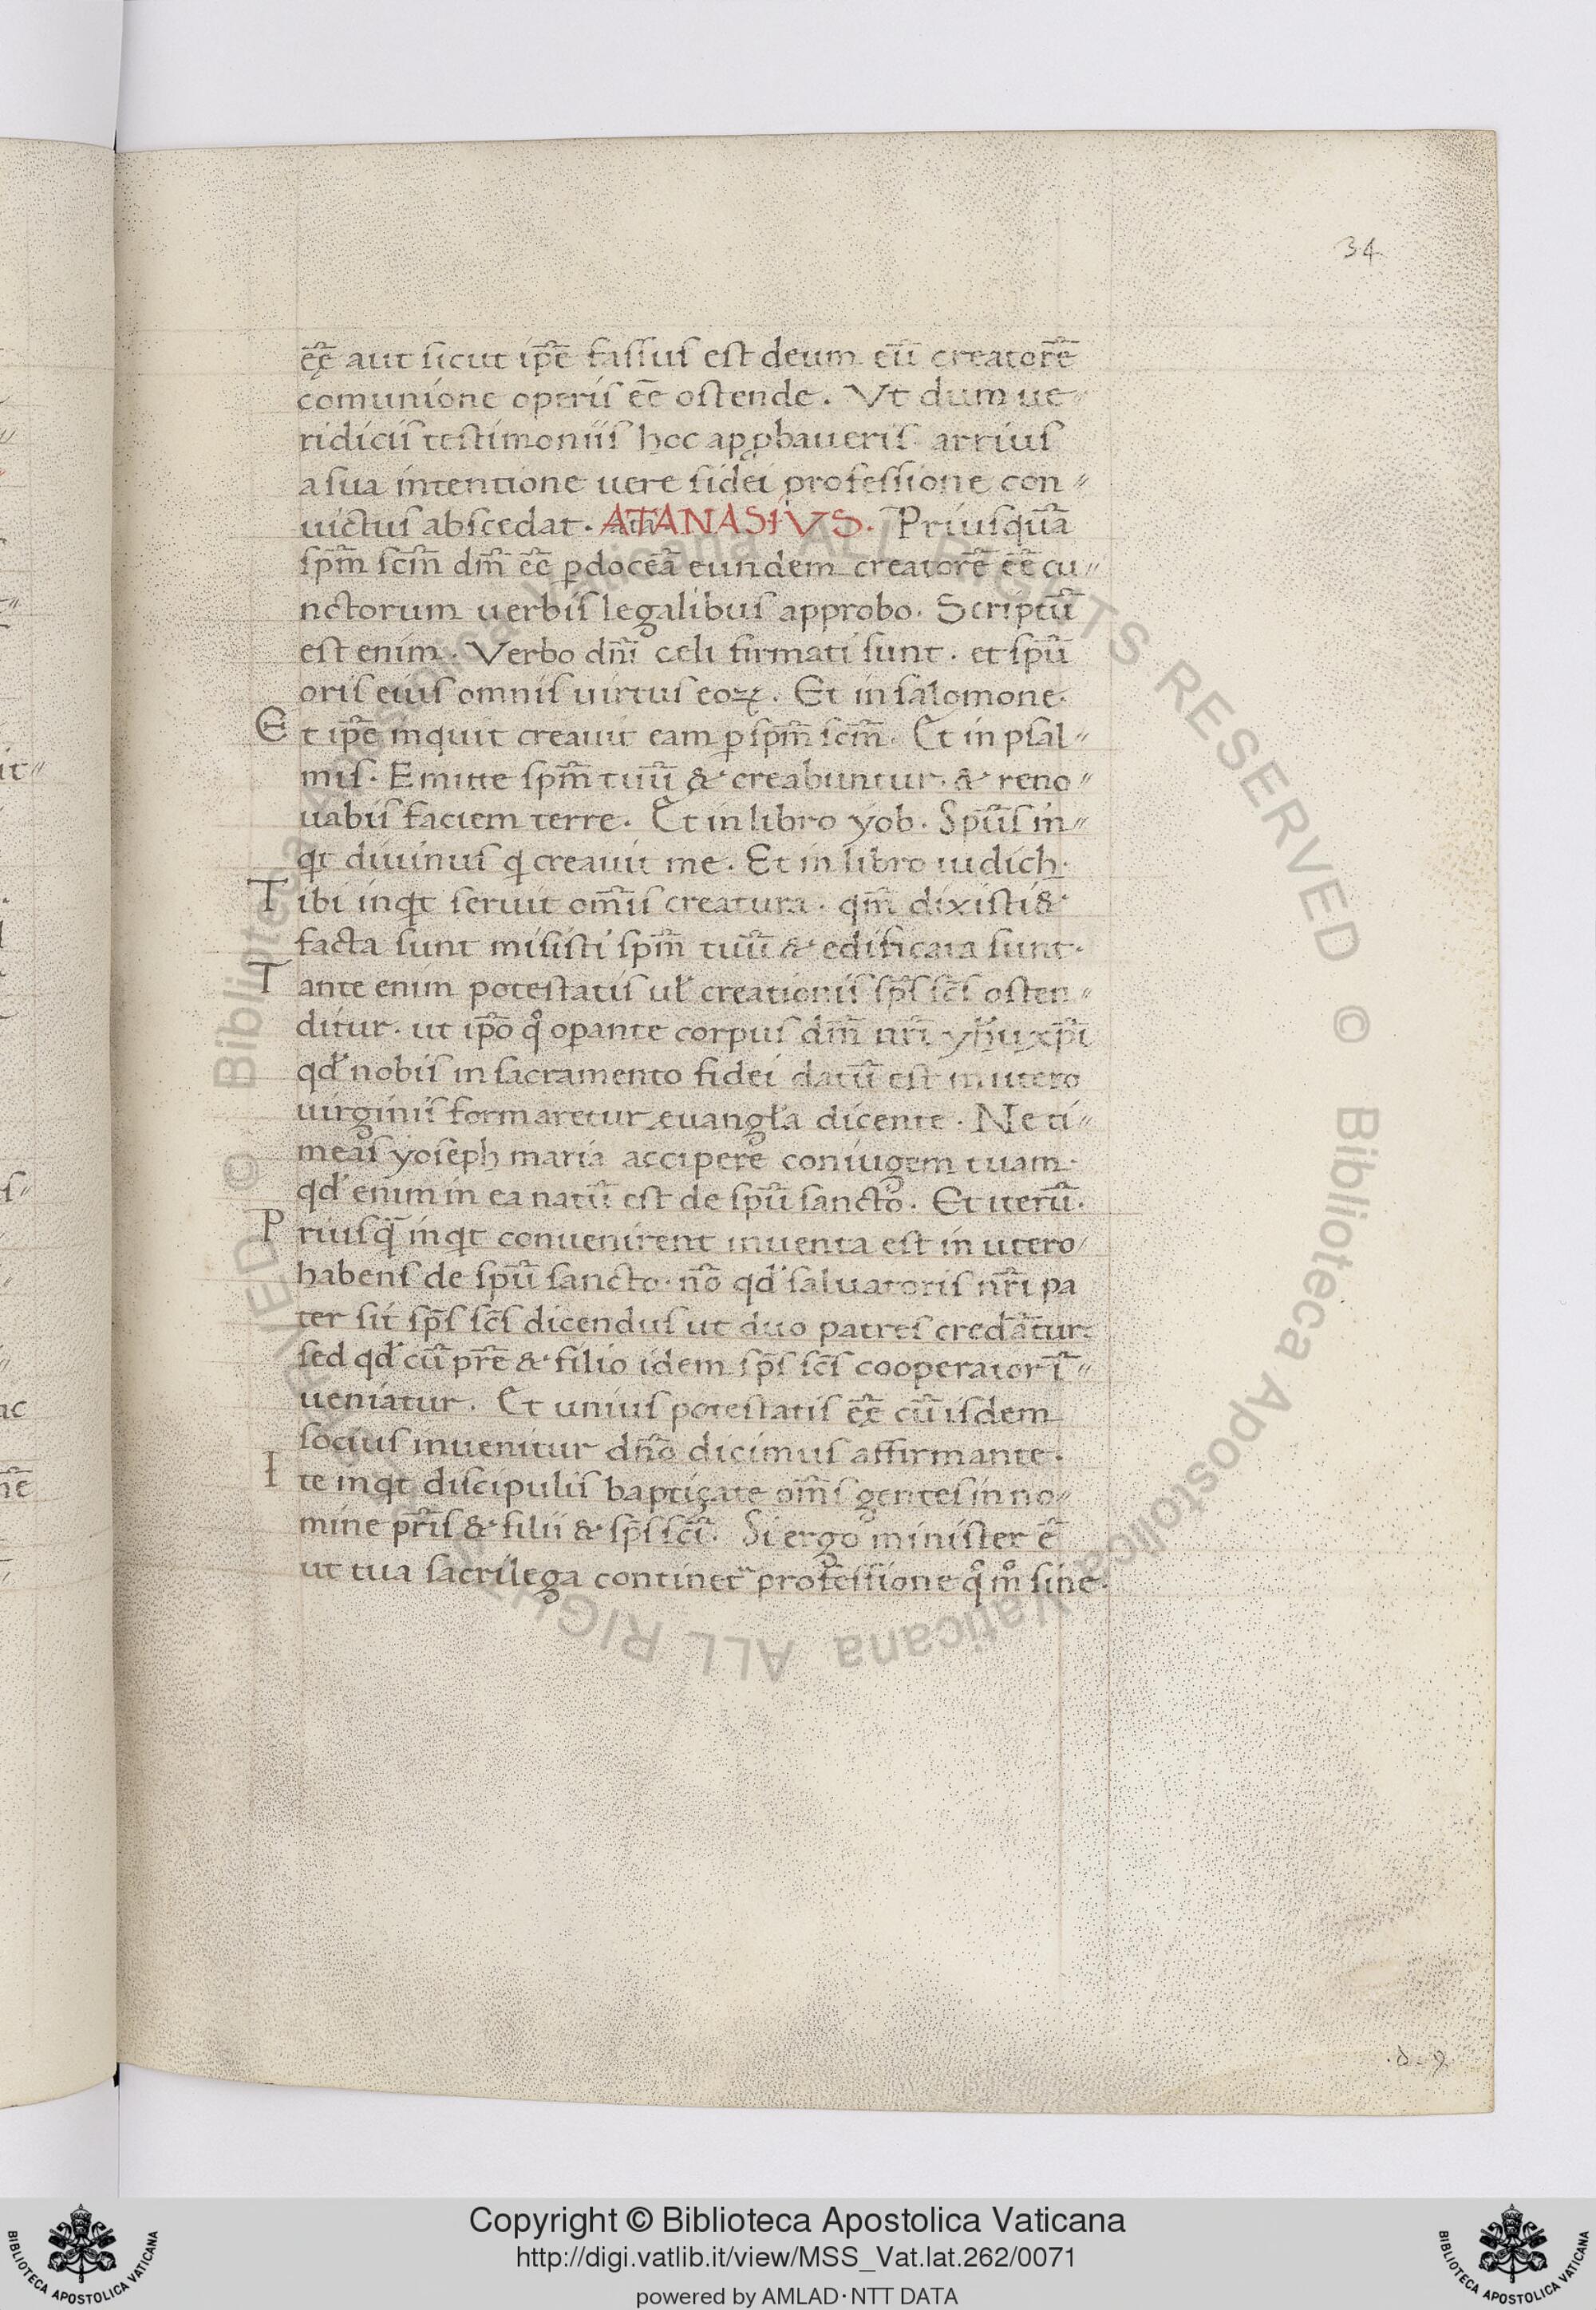 34
ęē aut sicut ip̄e fassus est deum eū creatorē
comunione operis eē ostende. Vt dum ue〃
ridicis testimoniis hoc apꝓbaueris arrius
a sua intentione uere fidei professione con〃
uictus abscedat. ATANASIVS. Priusquā
sp̄m sc̄m dm̄ eē ꝑdoceā eundem creatorē eē cu〃
nctorum uerbis legalibus approbo. Scriptū
est enim. Verbo dn̄i celi firmati sunt. et sp̄u
oris eius omnis uirtus eoꝝ. Et in salomone.
Et ip̄e inquit creauit eam ꝑ sp̄m sc̄m. Et in psal〃
mis. Emitte sp̄m tuū & creabuntur. & reno〃
uabis faciem terre. Et in libro yob. Sp̄us in〃
q̇t diuinus q̇ creauit me. Et in libro iudich.
Tibi inq̇t seruit om̄is creatura. qm̄ dixisti &
facta sunt misisti sp̄m tuū & edificata sunt.
Tante enim potestatis ul̓ creationis sp̄s sc̄s osten〃
ditur. ut ip̄o qͦ oꝑante corpus dm̄ nr̄i yħu xp̄i
qd̓ nobis in sacramento fidei datū est in utero
uirginis formaretur euangl̓a dicente. Ne ti〃
meas yoseph maria accipere coniugem tuam.
qd̓ enim in ea natū est de sp̄u sancto. Et iterū.
Priusq̄ inq̇t conuenirent inuenta est in utero
habens de sp̄u sancto. nō qd̓ saluatoris nr̄i pa
ter sit sp̄s sc̄s dicendus ut duo patres credātur.
sed qd̓ cū pr̄e & filio idem sp̄s sc̄s cooperator ī〃
ueniatur. Et unius potestatis ęē cū isdem
socius inuenitur dn̄o dicimus affirmante.
Ite inq̇t discipulis baptiçate om̄s gentes in no〃
mine pr̄is & filii & sp̄s sc̄i. Si ergo minister ē
ut tua sacrilega continet᷑ professione qͦmͦ sine.
Copyright © Biblioteca Apostolica Vaticana
http://digi.vatlib.it/view/MSS_Vat.lat.262/0071
powered by AMLAD·NTT DATA